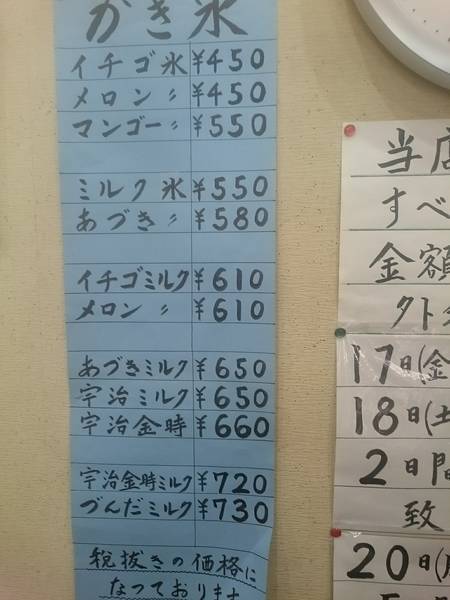 かき氷
イチゴ氷 ¥450
メロン〃 ¥450
マンゴー〃 ¥550
ミルク氷 ¥550
あづき〃 ¥580
イチゴミルク ¥610
メロン〃 ¥610
あづきミルク ¥650
宇治ミルク ¥650
宇治金時 ¥660
宇治金時ミルク ¥720
づんだミルク ¥730
税抜きの価格に
なっております
当店
すべ
金額
外
17日(金
18日(土
2日間
致
20日(月